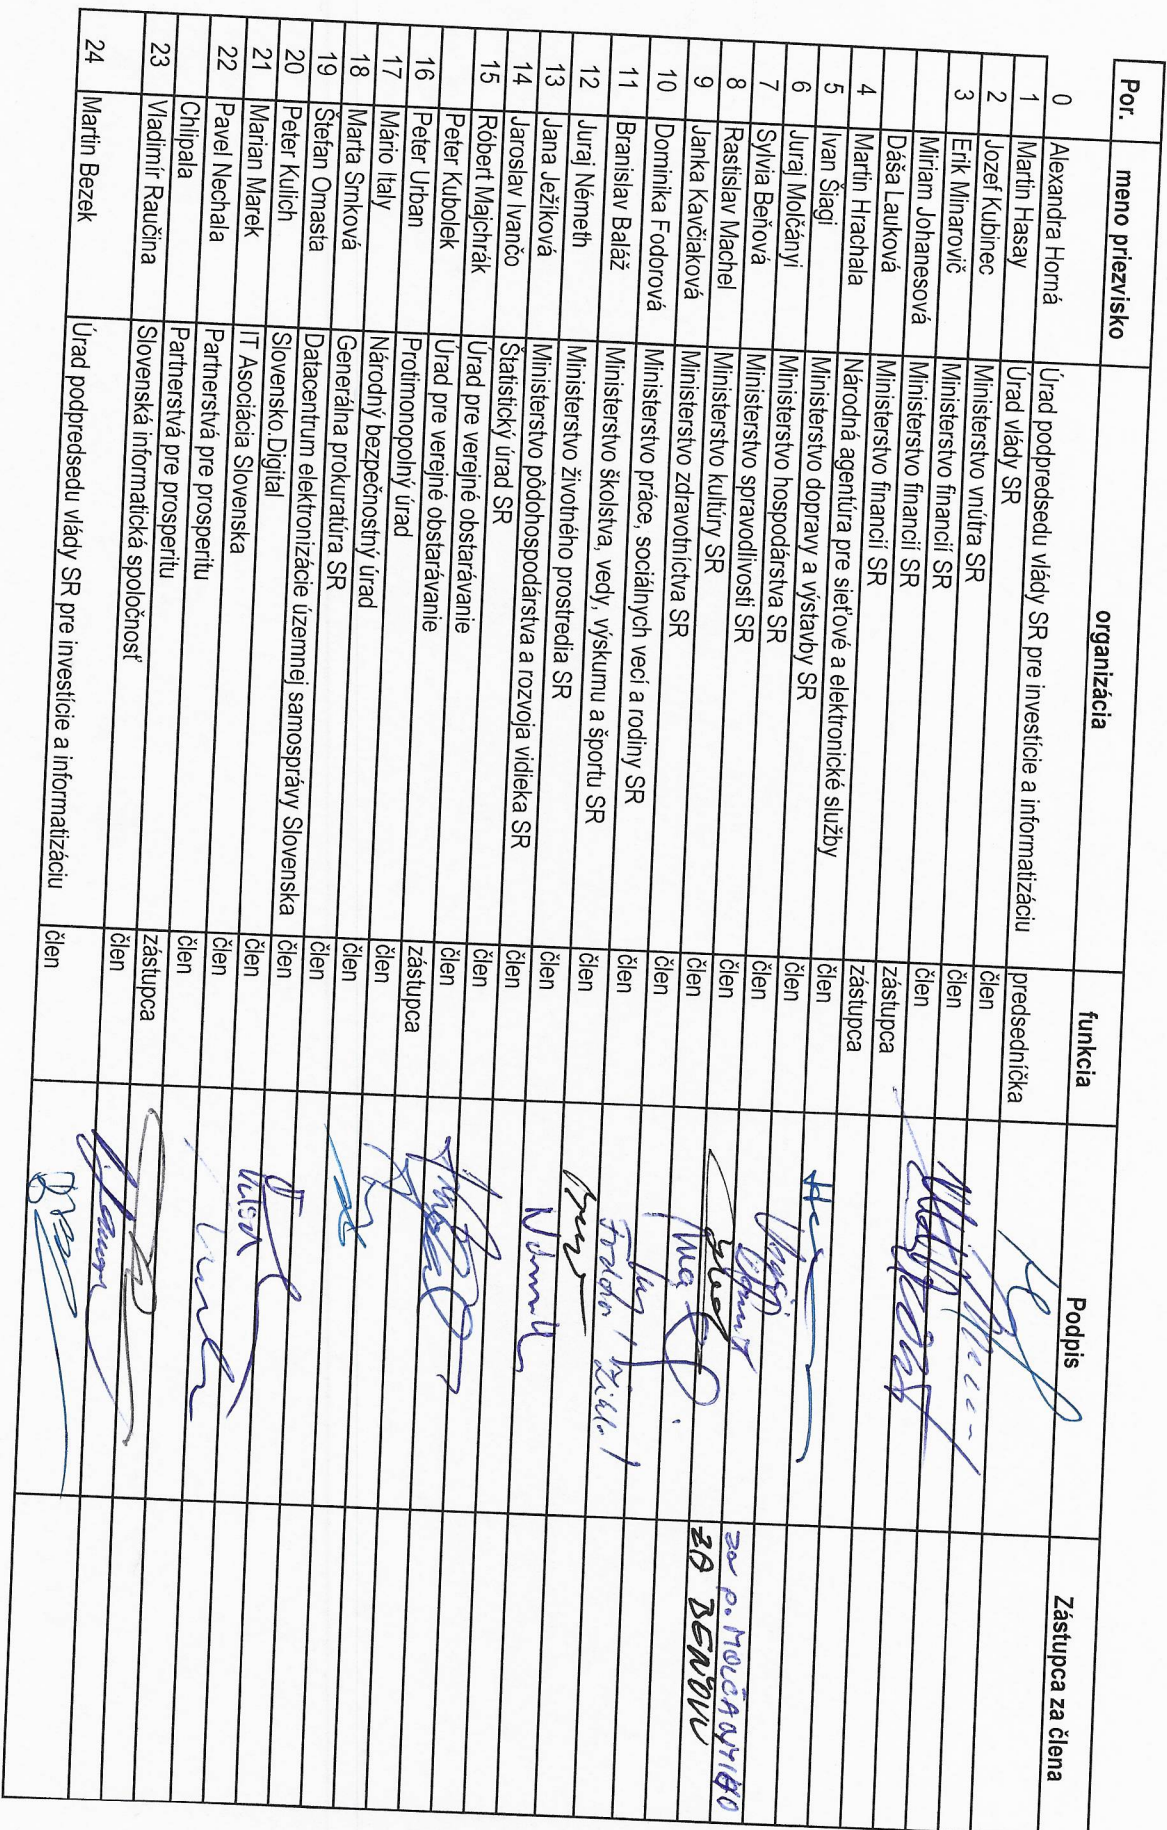 Por. meno priezvisko organizácia funkcia Podpis Zástupca za člena
0 Alexandra Horná Úrad podpredsedu vlády SR pre investície a informatizáciu predsedníčka
1 Martin Hasay Úrad vlády SR člen
2 Jozef Kubinec Ministerstvo vnútra SR člen
3 Erik Minarovič Ministerstvo financií SR člen
Miriam Johanesová Ministerstvo financií SR zástupca
Dáša Lauková Ministerstvo financií SR zástupca
4 Martin Hrachala Národná agentúra pre sieťové a elektronické služby člen
5 Ivan Šiagi Ministerstvo dopravy a výstavby SR člen
6 Juraj Molčányi Ministerstvo hospodárstva SR člen za p. MOLČANYIHO
7 Sylvia Beňová Ministerstvo spravodlivosti SR člen ZA BEŇOVU
8 Rastislav Machel Ministerstvo kultúry SR člen
9 Janka Kavčiaková Ministerstvo zdravotníctva SR člen
10 Dominika Fodorová Ministerstvo práce, sociálnych vecí a rodiny SR člen
11 Branislav Baláž Ministerstvo školstva, vedy, výskumu a športu SR člen
12 Juraj Németh Ministerstvo životného prostredia SR člen
13 Jana Ježíková Ministerstvo pôdohospodárstva a rozvoja vidieka SR člen
14 Jaroslav Ivančo Štatistický úrad SR člen
15 Róbert Majchrák Úrad pre verejné obstarávanie člen
Peter Kubolek Úrad pre verejné obstarávanie zástupca
16 Peter Urban Protimonopolný úrad člen
17 Mário Italy Národný bezpečnostný úrad člen
18 Marta Srnková Generálna prokuratúra SR člen
19 Štefan Omasta Datacentrum elektronizácie územnej samosprávy Slovenska člen
20 Peter Kulich Slovensko.Digital člen
21 Marian Marek IT Asociácia Slovenska člen
22 Pavel Nechala Partnerstvá pre prosperitu člen
Chlipala Partnerstvá pre prosperitu zástupca
23 Vladimír Raučina Slovenská informatická spoločnosť člen
24 Martin Bezek Úrad podpredsedu vlády SR pre investície a informatizáciu člen